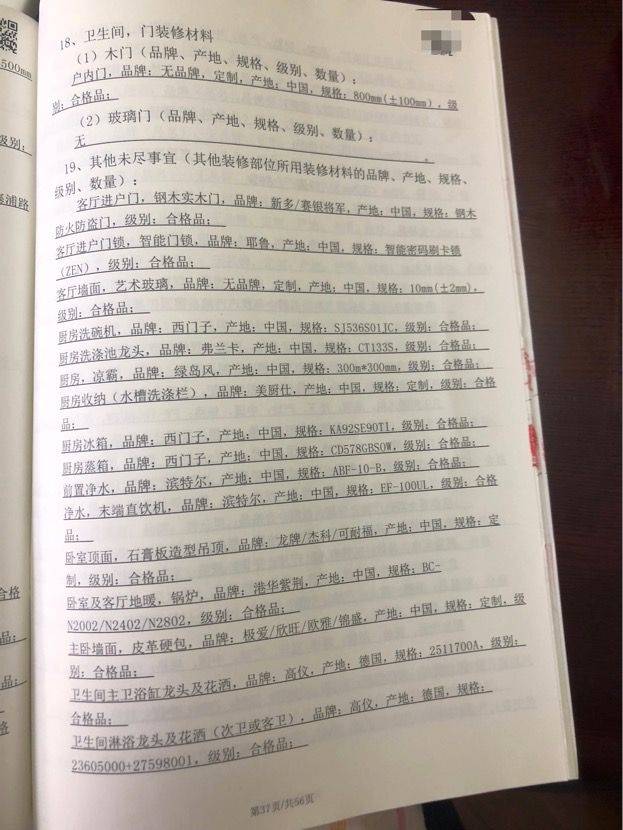 500mm
18、卫生间，门装修材料
（1）木门（品牌、产地、规格、级别、数量）：
户内门，品牌：无品牌，定制，产地：中国，规格：800mm(±100mm)，级
别：合格品；
（2）玻璃门（品牌、产地、规格、级别、数量）：
无 。
19、其他未尽事宜（其他装修部位所用装修材料的品牌、产地、规格、
级别、数量）：
客厅进户门，钢木实木门，品牌：新多/赛银将军，产地：中国，规格：钢木
防火防盗门，级别：合格品；
客厅进户门锁，智能门锁，品牌：耶鲁，产地：中国，规格：智能密码刷卡锁
（ZEN），级别：合格品；
客厅墙面，艺术玻璃，品牌：无品牌，定制，产地：中国，规格：10mm(±2mm)，
级别：合格品；
厨房洗碗机，品牌：西门子，产地：中国，规格：SJ536S01JC，级别：合格品；
厨房洗涤池龙头，品牌：弗兰卡，产地：中国，规格：CT133S，级别：合格品；
厨房，凉霸，品牌：绿岛风，产地：中国，规格：300m*300mm，级别：合格品；
厨房收纳（水槽洗涤栏），品牌：美厨仕，产地：中国，规格：定制，级别：合格
品；
厨房冰箱，品牌：西门子，产地：中国，规格：KA92SE90TI，级别：合格品；
厨房蒸箱，品牌：西门子，产地：中国，规格：CD578GBS0W，级别：合格品；
前置净水，品牌：滨特尔，产地：中国，规格：ABF-10-B，级别：合格品；
净水，末端直饮机，品牌：滨特尔，产地：中国，规格：EF-100UL，级别：合格
品；
卧室顶面，石膏板造型吊顶，品牌：龙牌/杰科/可耐福，产地：中国，规格：定
制，级别：合格品；
卧室及客厅地暖，锅炉，品牌：港华紫荆，产地：中国，规格：BC-
N2002/N2402/N2802，级别：合格品；
主卧墙面，皮革硬包，品牌：极爱/欣旺/欧雅/锦盛，产地：中国，规格：定制，级
别：合格品；
卫生间主卫浴缸龙头及花洒，品牌：高仪，产地：德国，规格：2511700A，级别：
合格品；
卫生间淋浴龙头及花洒（次卫或客卫），品牌：高仪，产地：德国，规格：
23605000+27598001，级别：合格品；
第37页/共56页
级别：
溪浦路
合格
品；
品；
合格